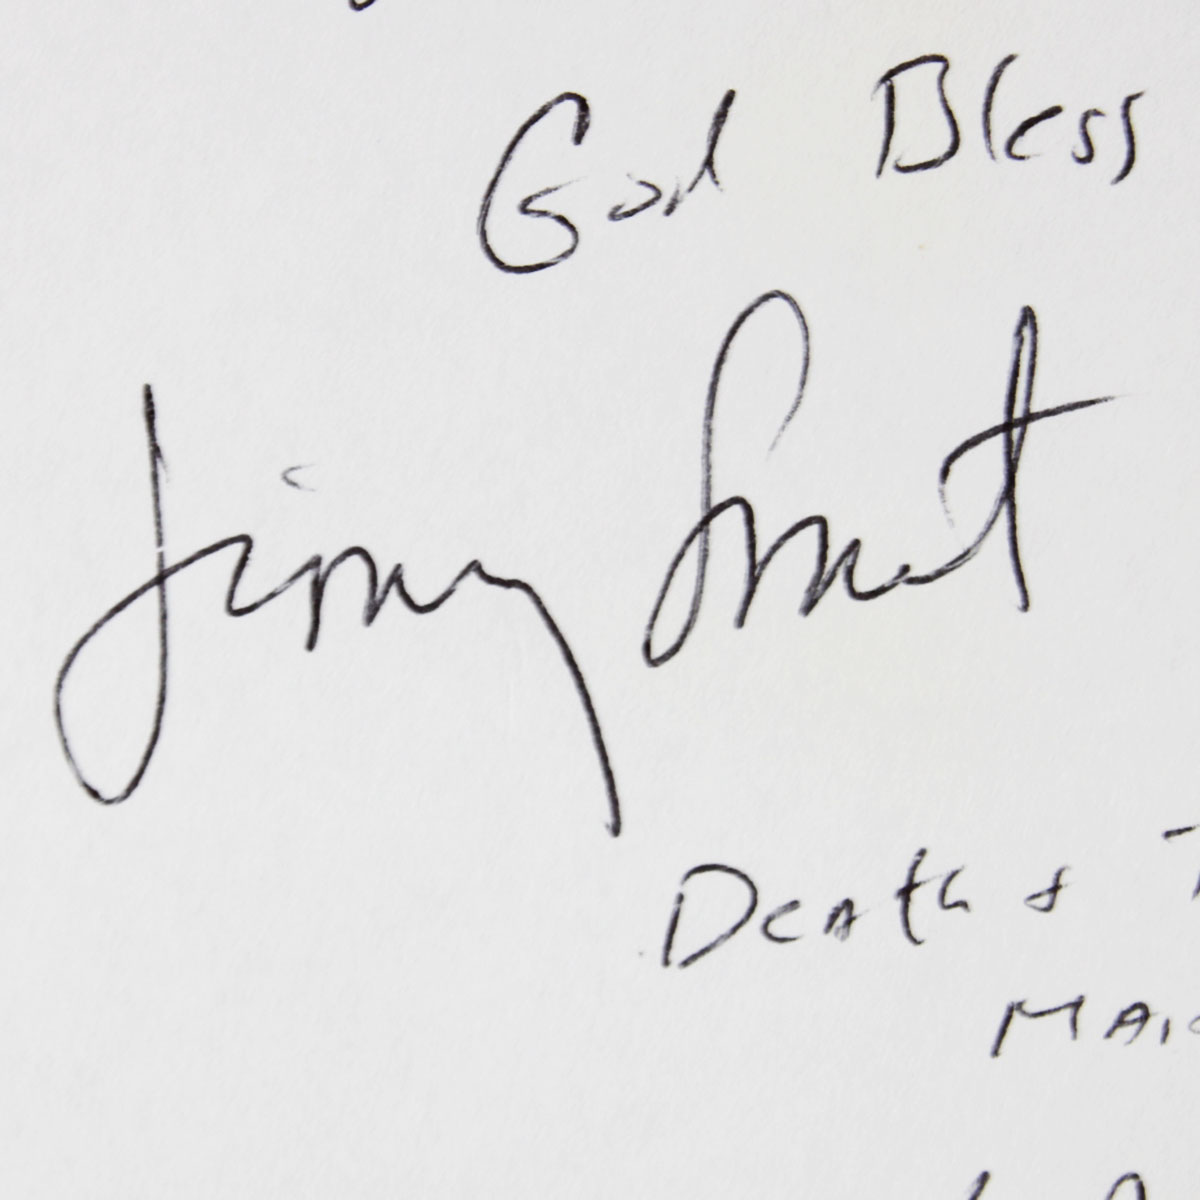 God Bless
Jimmy Smit
Death &